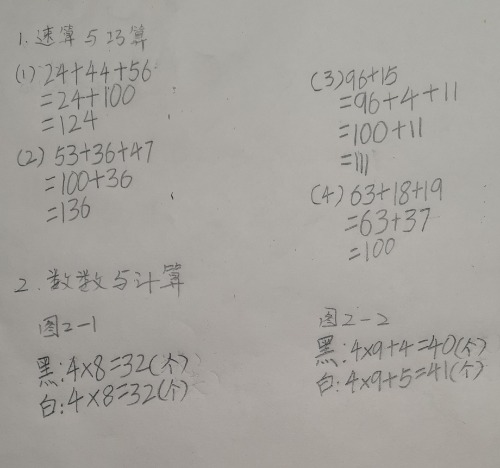 1. 速算与巧算
(1) 24+44+56
=24+100
=124
(2) 53+36+47
=100+36
=136
(3) 96+15
=96+4+11
=100+11
=111
(4) 63+18+19
=63+37
=100
2. 数数与计算
图2-1
黑:4×8=32(个)
白:4×8=32(个)
图2-2
黑:4×9+4=40(个)
白:4×9+5=41(个)